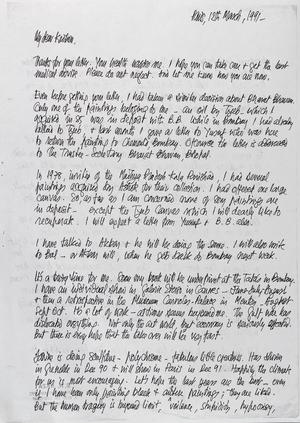 Paris, 18th March, 1991-
My dear Krishen,
Thanks for your letter. Your health worries me. I hope you can take care & get the best
medical advice. Please do not neglect. And let me know how you are now.
Even before getting your letter, I had taken a similar decision about Bharat Bhavan.
Only one of the paintings belongs to me - an oil by Tyeb, which I
acquired in 85 was in deposit with B.B. While in Bombay I had already
talked to Tyeb, & last month I gave a letter to Yusuf who was here
to return the painting to Chemould Bombay. Of course the letter is addressed
to the Trustee-Secretary Bharat Bhavan Bhopal.
In 1978, invited by the Madhya Pradesh Kala Parishad, I had several
paintings acquired by Ashok for their collection. I had offered one large
canvas. So, as far as I am concerned none of my paintings are
in deposit - except the Tyeb Canvas which I will clearly like to
recuperate. I will expect a letter from Yusuf & B.B. also.
I have talked to Akbar & he will be doing the same. I will also write
to that - or Akbar will, when he gets back to Bombay next week.
It's a busy time for me. Soon my book will be under print at the Tata's in Bombay.
I have an individual show in Galerie Sapone in Cannes - June-July-August
& then a retrospective in the Museum Carnoles Palace in Menton, August
Sept Oct. It's a lot of work - at times many hesitations. The Gulf war has
dislocated everything. Not only the art world, but economy is seriously affected.
But there is every hope that the take over will be very fast.
Janine is doing sculpture - polychrome - fabulous little creatures. Has shown
in Grenoble in Dec 90 & will show in Paris in Dec 91. Happily the climate
for us is most encouraging. Let's hope the last years are the best - even
if I have been only painting black & austere paintings; they are liked.
But the human tragedy is beyond limit, violence, stupidity, hypocrisy,